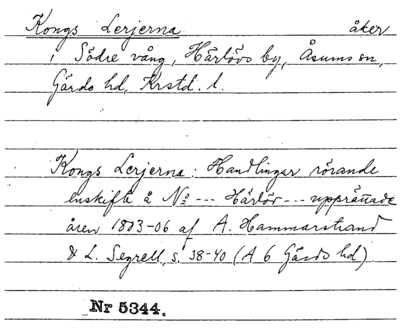 Kongs Lerjerna åker
i Södre vång, Härlövs by, Åsums sn,
Gärds hd, Krstd. l.
Kongs Lerjerna: Handlingar rörande
enskifte å No --- Härlöv --- upprättade
åren 1803-06 af A. Hammarstrand
& L. Segrell, s. 38-40 (A 6 Gärds hd)
Nr 5344.